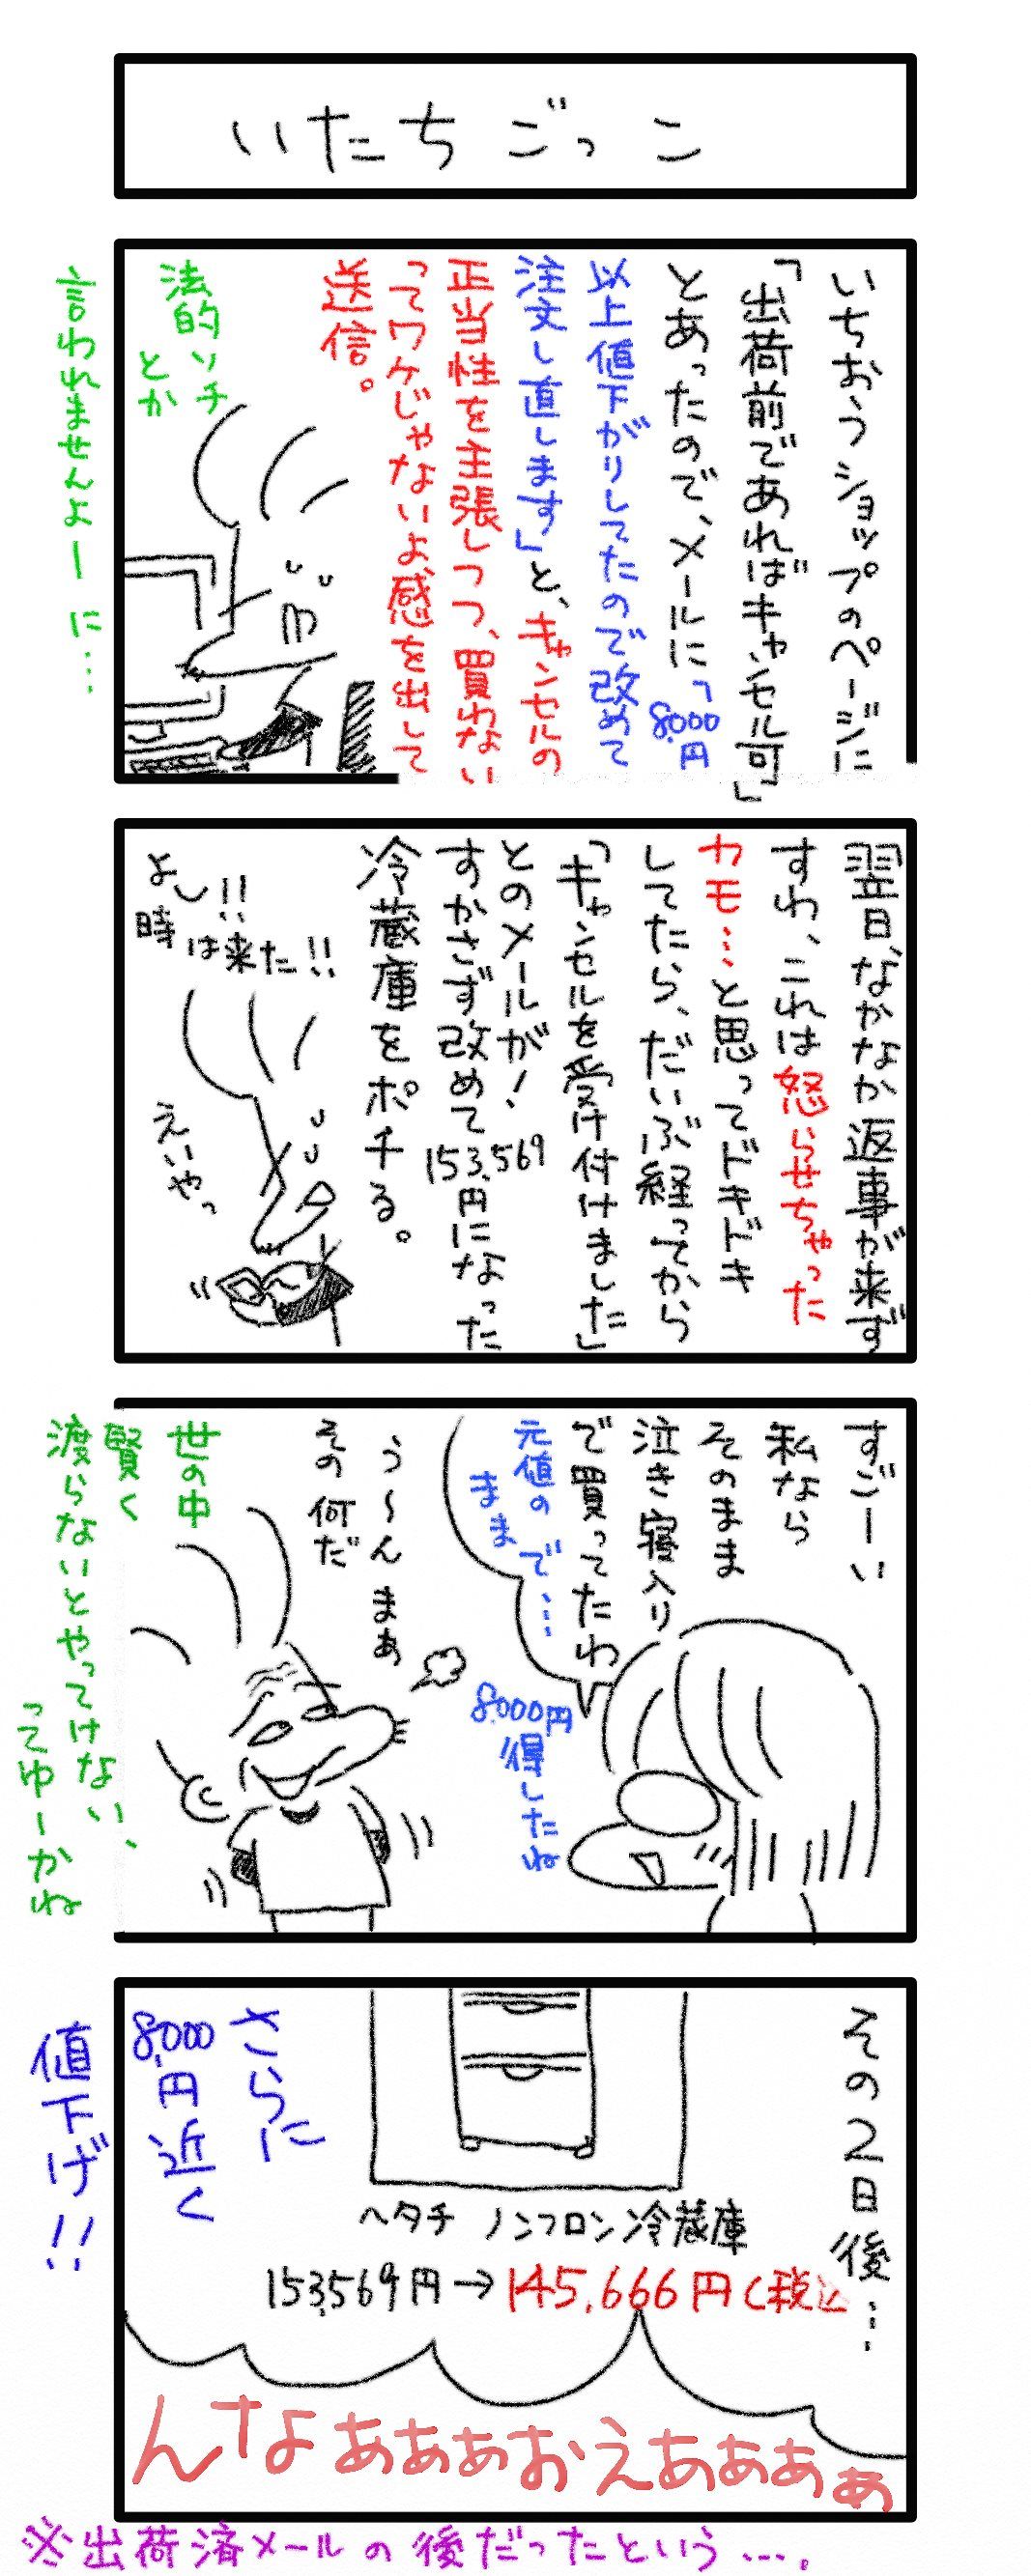 いたちごっこ
いちおうショップのページに
「出荷前であればキャンセル可」
とあったので、メールに「8,000円
以上値下がりしてたので改めて
注文し直します」と、キャンセルの
正当性を主張しつつ、買わない
ってワケじゃないよ感を出して
送信。
法的ソチ
とか
言われませんよーに…
翌日、なかなか返事が来ず
すわ、これは怒らせちゃった
カモ…と思ってドキドキ
してたら、だいぶ経ってから
「キャンセルを受け付けました」
とのメールが!
すかさず改めて153,569円になった
冷蔵庫をポチる。
よし!!
時は来た!!
えいやっ
すごーい
私なら
そのまま
泣き寝入り
で買ってたわ
元値の
まま
で…
8,000円
得したね
う～んまぁ
その何だ
世の中
賢く
渡らないとやってけない、
ってゆーかね
その2日後…
ヘタチ ノンフロン冷蔵庫
153,569円→145,666円(税込
さらに
8,000円近く
値下げ!!
んなぁぁぁおえあぁぁぁ
※出荷済メールの後だったという…。